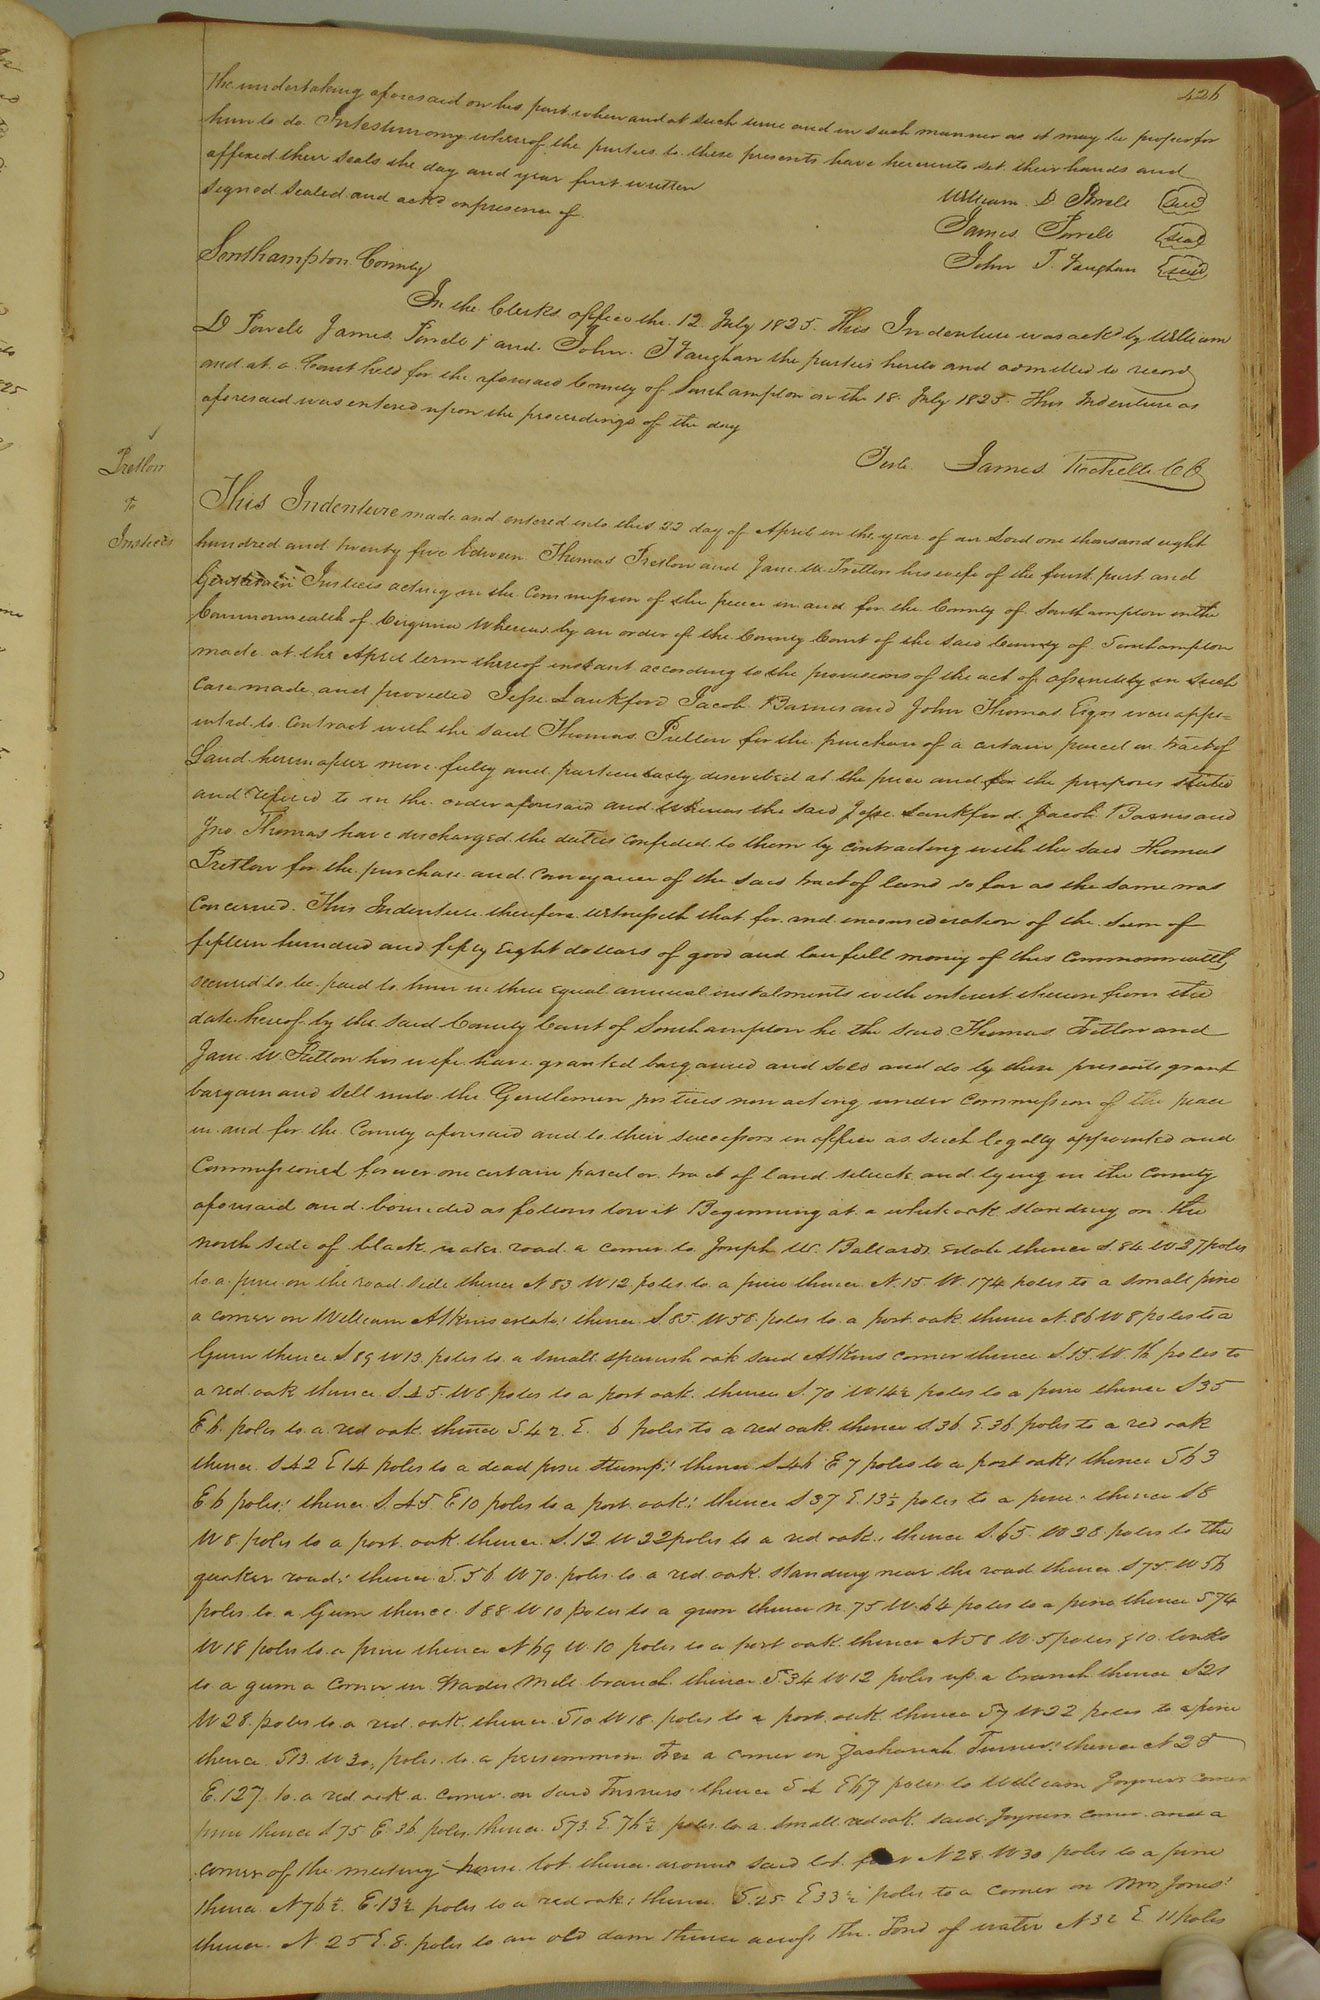 426
the undertaking aforesaid on his part when and at such time and in such manner as it may be proper for
him to do. In testimony whereof the parties to these presents have hereunto set their hands and
affixed their seals the day and year first written
Signed Sealed and ackd in presence of
William D Powell (seal)
James Powell (seal)
John T. Vaughan (seal)
Southampton County
In the Clerks office the 12 July 1825. This Indenture was ackd by William
D Powell James Powell & and John T Vaughan the parties hereto and admitted to record
and at a Court held for the aforesaid County of Southampton on the 18 July 1825. This Indenture as
aforesaid was entered upon the proceedings of the day
Teste James Rochelle CC
Pretlow
to
Justices
This Indenture made and entered into this 22 day of April in the year of our Lord one thousand eight
hundred and twenty five between Thomas Pretlow and Jane W. Pretlow his wife of the first part and
Justices acting in the Commission of the peace in and for the County of Southampton in the
Commonwealth of Virginia Whereas by an order of the County Court of the said County of Southampton
made at the April term thereof instant according to the provisions of the act of assembly in such
Case made and provided Jesse Lankford Jacob Barnes and John Thomas Esqrs were appo=
inted to Contract with the said Thomas Pretlow for the purchase of a certain parcel or tract of
Land herein after more fully and particularly described at the price and for the purposes stated
and refered to in the order aforesaid and Whereas the said Jesse Lankford Jacob Barnes and
Jno. Thomas have discharged the duties confided to them by contracting with the said Thomas
Pretlow for the purchase and Conveyance of the said tract of land so far as the same was
Concerned. This Indenture therefore witnesseth that for and in consideration of the sum of
fifteen hundred and fifty eight dollars of good and lawfull money of this Commonwealth,
secured to be paid to him in three equal annual instalments with interest thereon from the
date hereof by the said County Court of Southampton he the said Thomas Pretlow and
Jane W Pretlow his wife have granted bargained and sold and do by these presents grant
bargain and sell unto the Gentlemen justices now acting under Commission of the peace
in and for the County aforesaid and to their successors in office as such legally appointed and
Commissioned forever one certain parcel or tract of land situate and lying in the County
aforesaid and bounded as follows towit Beginning at a white oak standing on the
north side of black water road a corner to Joseph W. Ballards estate thence S 84 W 27 poles
to a pine on the road side thence N. 83 W 12 poles to a pine thence N. 15. W. 174 poles to a small pine
a corner on William Atkins estate; thence S. 85 W 58 poles to a post oak thence N. 86 W 8 poles to a
Gum thence S 89 W 13 poles to a small spanish oak said Atkins corner thence S. 15. W. poles to
a red oak thence S. 25. W 6 poles to a post oak thence S. 70 W 14½ poles to a pine thence S 35
E 6. poles to a red oak thence S 42. E. 6 poles to a red oak thence S 36 E. 36 poles to a red oak
thence S 42 E 14 poles to a dead pine stump; thence S 46 E 7 poles to a post oak; thence S 63
E 6 poles; thence S. 45. E 10 poles to a post oak; thence S 37 E. 13½ poles to a pine; thence S 8
W 8 poles to a post oak thence S. 12 W 22 poles to a red oak; thence S. 65. W 28 poles to the
quaker road; thence S. 56. W 70 poles to a red oak standing near the road thence S 75 W 56
poles to a Gum thence S 88 W 10 poles to a gum thence N. 75 W. 64 poles to a pine thence S 74
W 18 poles to a pine thence N 69 W. 10 poles to a post oak thence N 58 W. 5 poles & 10 links
to a gum a corner in Wades Mill branch thence S 34 W 12 poles up a branch thence S 21
W 28 poles to a red oak thence S 10 W 18 poles to a post oak thence S 7 W 22 poles to a pine
thence S 13 W 30, poles to a persimmon tree a corner on Zachariah Turner; thence N 28
E. 127 to a red oak a corner on said Turners; thence S 4 E 67 poles to William Joyners corner
pine thence S 75 E. 36 poles thence S 73. E. 76½ poles to a small red oak said Joyners corner and a
corner of the meeting house lot thence around said lot N 28 W 30 poles to a pine
thence N 76½ E. 13½ poles to a red oak; thence S. 25 E 33½ poles to a corner on Mrs Jones'
thence N. 25 E. 8. poles to an old dam thence across the Pond of water N 32 E 11 poles